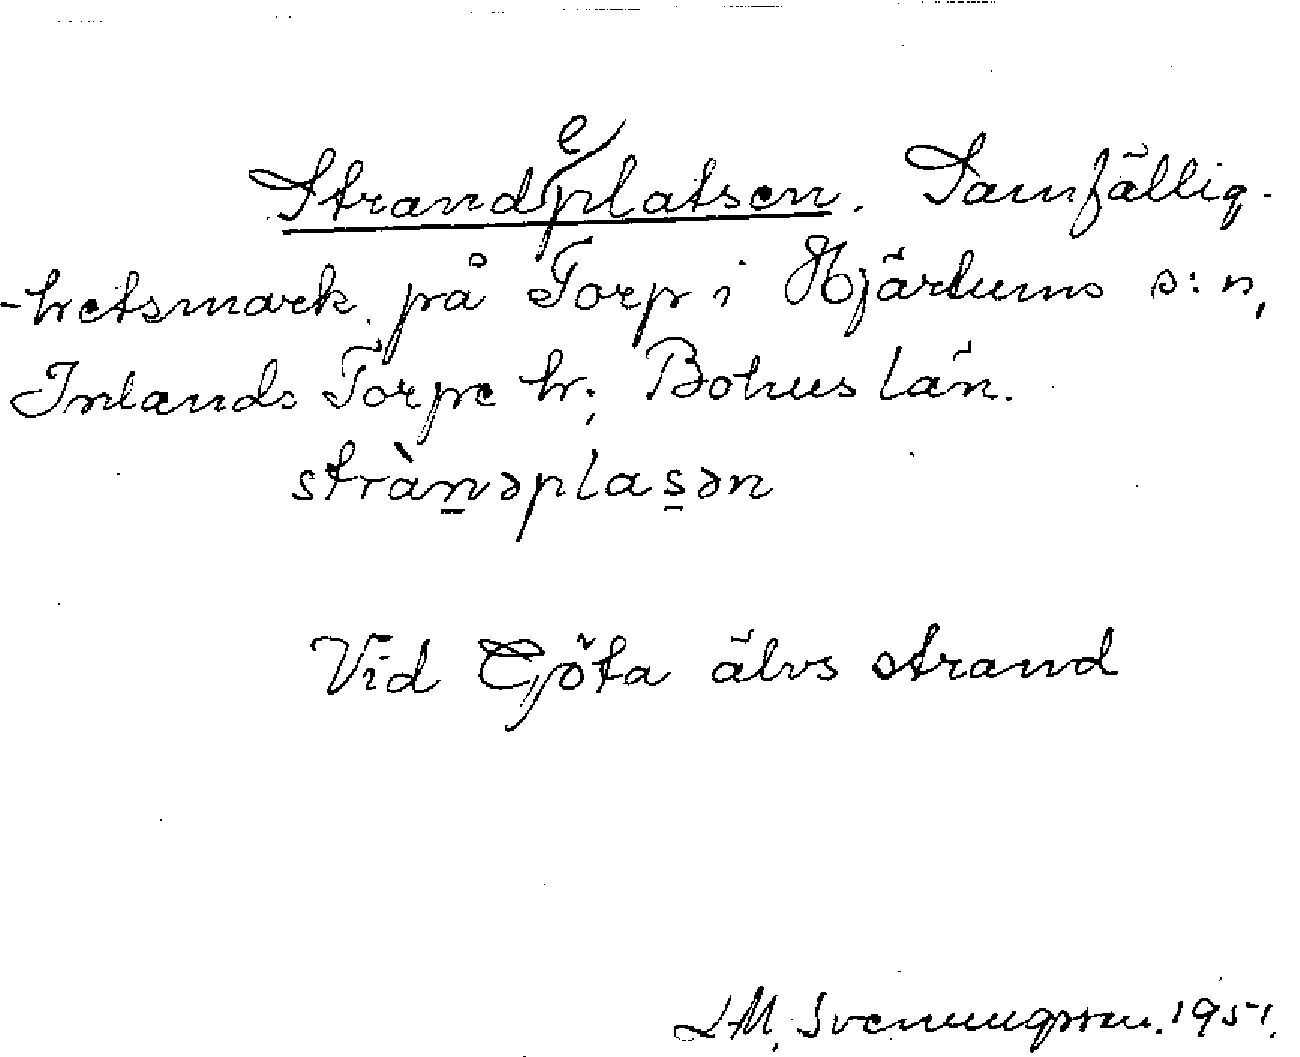 Strandeplatsen. Samfällig-
-hetsmark på Torp i Hjärtums s:n,
Inlands Torpe hr; Bohus län.
stràn̲əplas̲ən
Vid Göta älvs strand
L.M. Svenungsson. 1951.